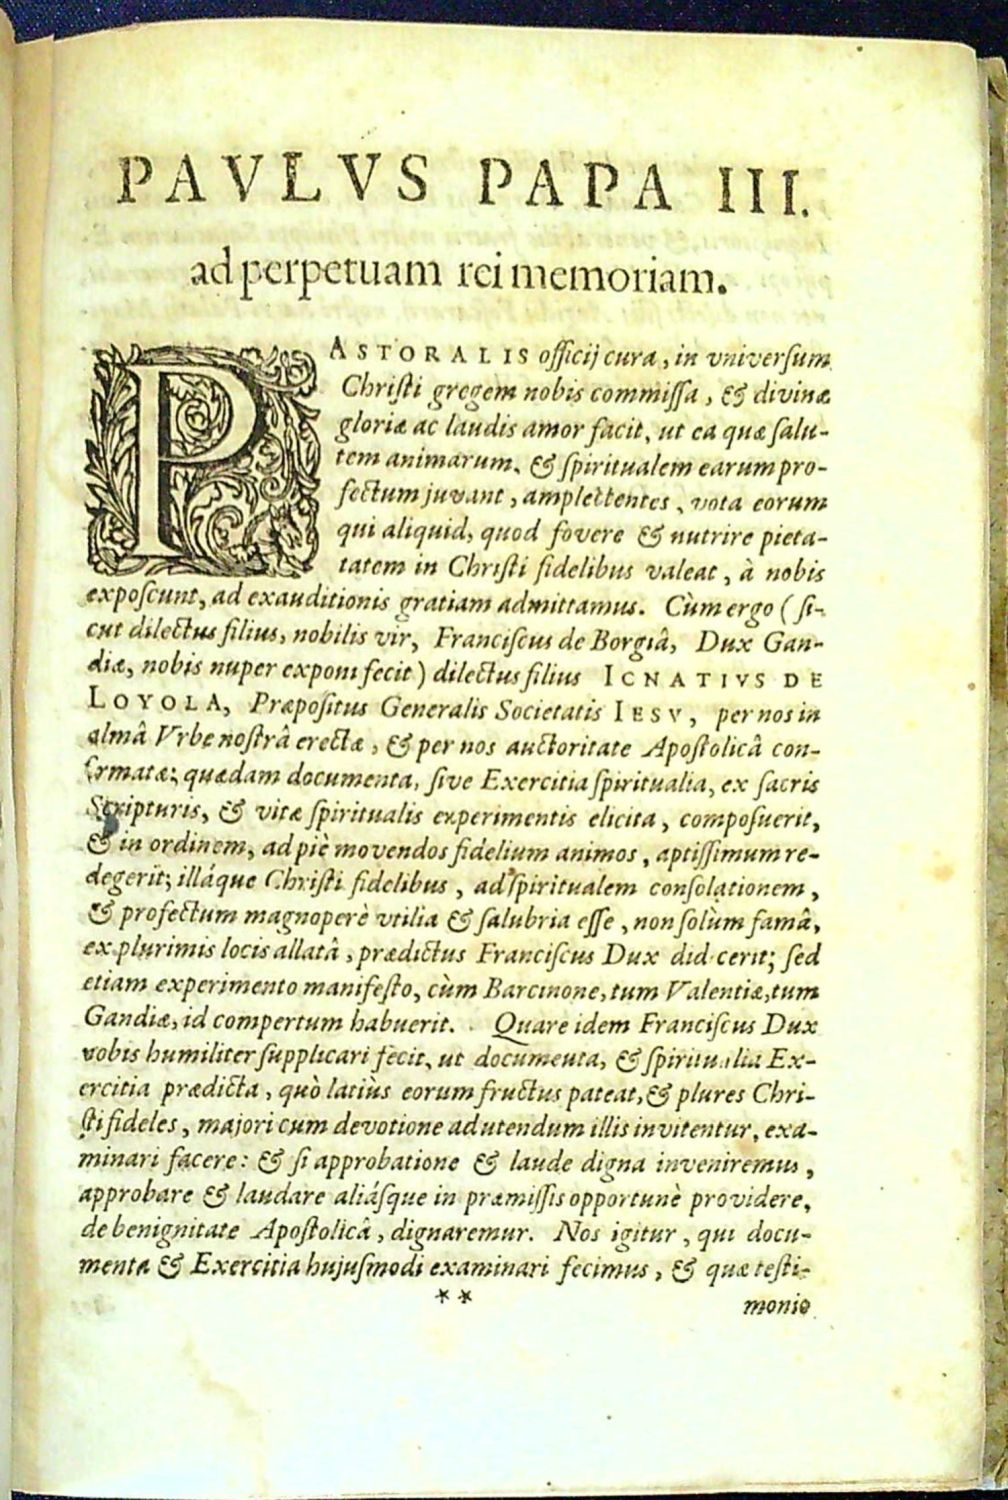 PAVLVS PAPA III.
ad perpetuam rei memoriam.
PASTORALIS officij cura, in vniversum
Christi gregem nobis commissa, & divinæ
gloriæ ac laudis amor facit, ut ea quæ salu-
tem animarum, & spiritualem earum pro-
fectum juvant, amplectentes, vota eorum
qui aliquid, quod fovere & nutrire pieta-
tatem in Christi fidelibus valeat, à nobis
exposcunt, ad exauditionis gratiam admittamus. Cùm ergo ( si-
cut dilectus filius, nobilis vir, Franciscus de Borgiâ, Dux Gan-
diæ, nobis nuper exponi fecit ) dilectus filius IGNATIVS DE
LOYOLA, Præpositus Generalis Societatis IESV, per nos in
almâ Vrbe nostrâ erectæ, & per nos auctoritate Apostolicâ con-
firmatæ; quædam documenta, sive Exercitia spiritualia, ex sacris
Scripturis, & vitæ spiritualis experimentis elicita, composuerit,
& in ordinem, ad piè movendos fidelium animos, aptissimum re-
degerit; illáque Christi fidelibus, ad spiritualem consolationem,
& profectum magnoperè vtilia & salubria esse, non solùm famâ,
ex plurimis locis allatâ, prædictus Franciscus Dux didicerit; sed
etiam experimento manifesto, cùm Barcinone, tum Valentiæ, tum
Gandiæ, id compertum habuerit. Quare idem Franciscus Dux
nobis humiliter supplicari fecit, ut documenta, & spiritualia Ex-
ercitia prædicta, quò latiùs eorum fructus pateat, & plures Chri-
sti fideles, majori cum devotione ad utendum illis invitentur, exa-
minari facere: & si approbatione & laude digna inveniremus,
approbare & laudare aliásque in præmissis opportunè providere,
de benignitate Apostolicâ, dignaremur. Nos igitur, qui docu-
menta & Exercitia hujusmodi examinari fecimus, & quæ testi-
** monio